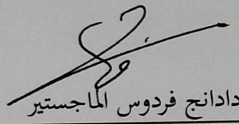 دادانج فردوس الماجستير